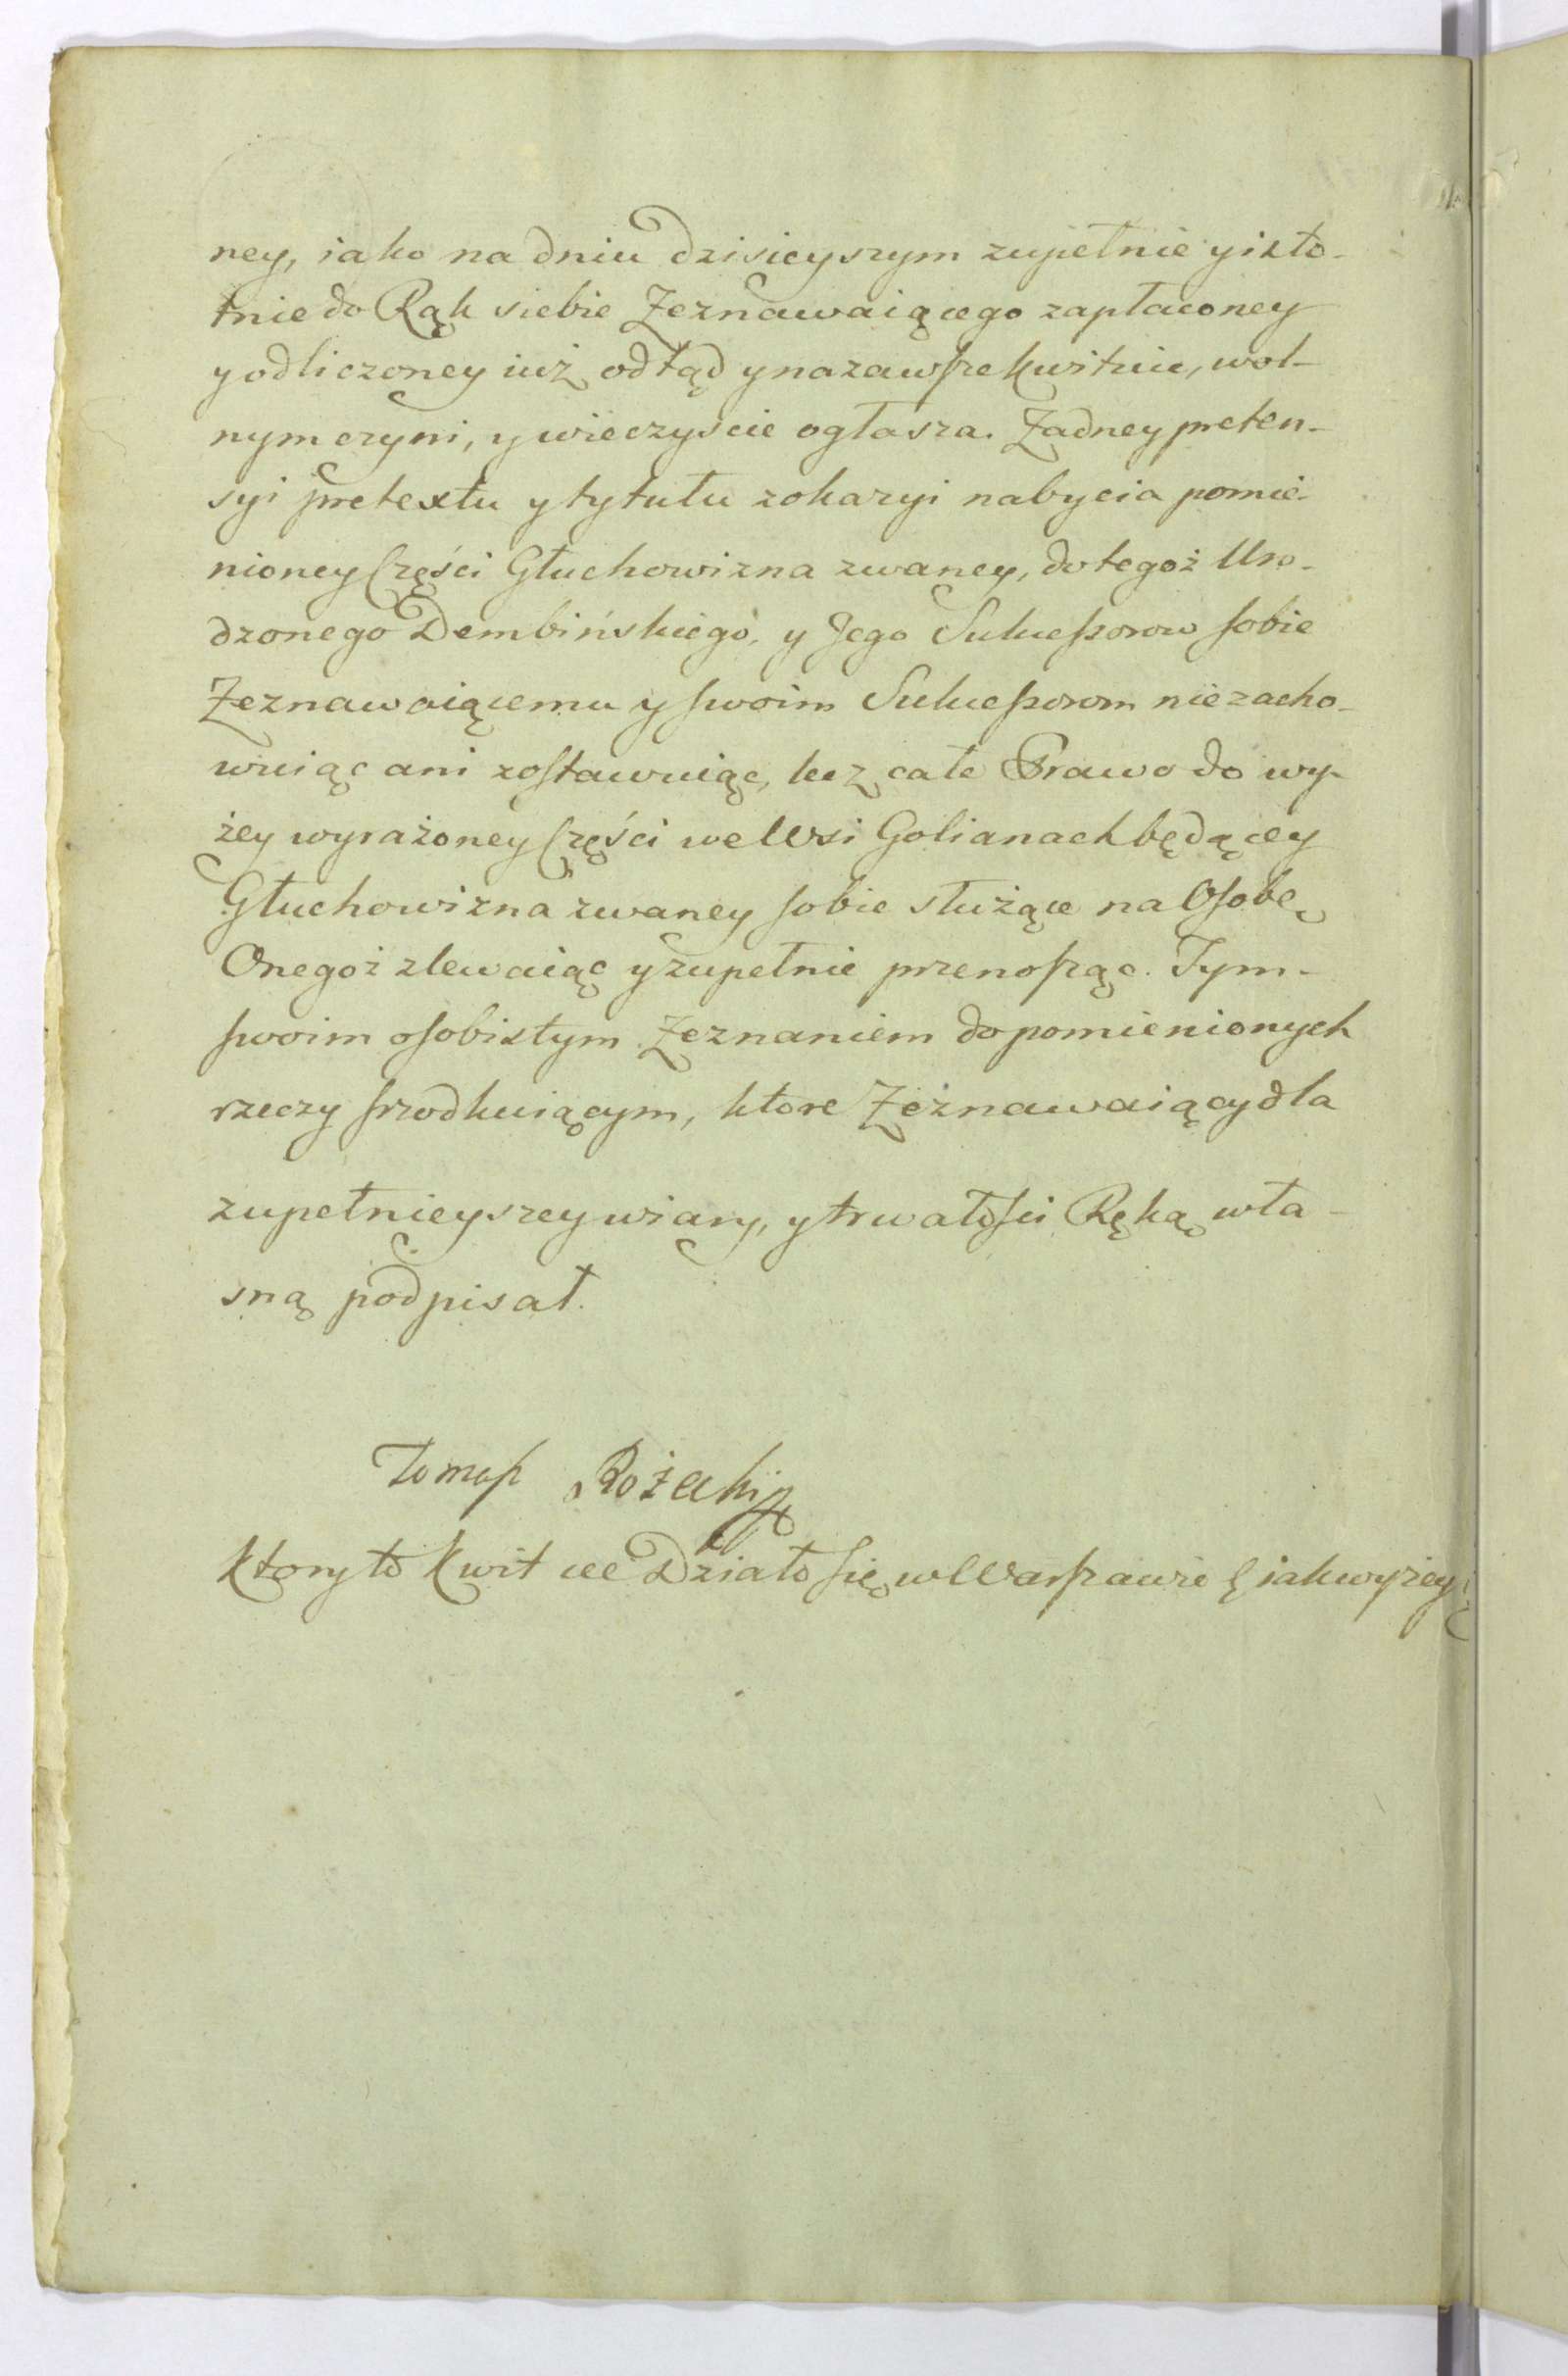 ney, iako na dniu dzisieyszym zupełnie y isto-
tnie do Rąk siebie Zeznawaiącego zapłaconey
y odliczoney iuż odtąd y na zawsze kwituie, wol-
nym czyni, y wieczyscie ogłasza. Żadney preten-
syi pretextu y tytułu z okazyi nabycia pomie-
nioney Części Głuchowizna zwaney, do tegoż Uro-
dzonego Dembińskiego, y Jego Sukcessorow sobie
Zeznawaiącemu y swoim Sukcessorom nie zacho-
wuiąc ani zostawuiąc, lecz całe Prawo do wy-
żey wyrażoney Części we Wsi Golianach będącey
Głuchowizna zwaney sobie służące na Osobę
Onegoż zlewaiąc y zupełnie przenosząc. Tym-
swoim osobistym Zeznaniem do pomienionych
rzeczy srzodkuiącym, ktore Zeznawaiący dla
zupełnieyszey wiary, y trwałości Ręką wła-
sną podpisał.
Tomasz Rożecki
Ktory to Kwit Działo się w Warszawie jak wyżey